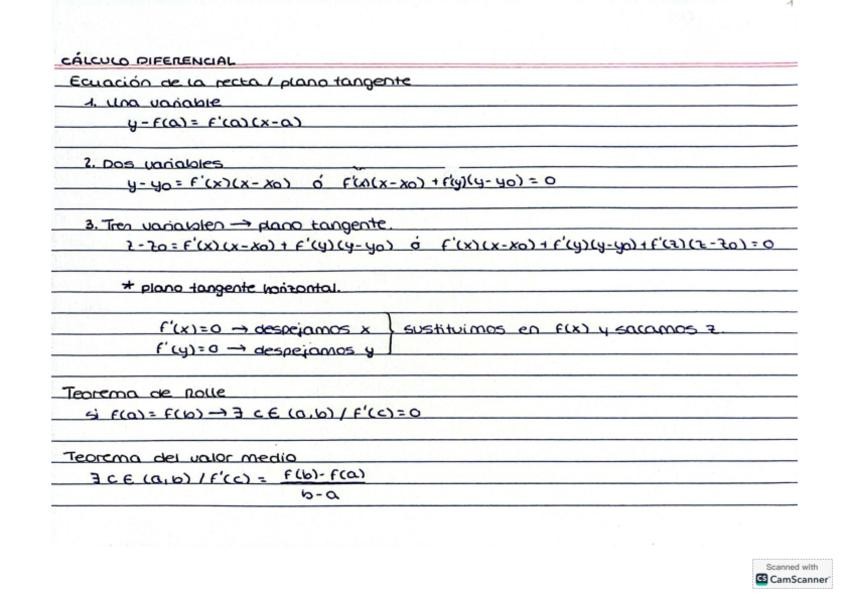 1
CÁLCULO DIFERENCIAL
Ecuación de la recta / plano tangente
1. Una variable
y-f(a)= f'(a)(x-a)
2. Dos variables
y-y0 = f'(x)(x-x0) ó f'(x)(x-x0) + f'(y)(y-y0) = 0
3. Tres variables → plano tangente.
z-z0 = f'(x)(x-x0) + f'(y)(y-y0) ó f'(x)(x-x0) + f'(y)(y-y0) + f'(z)(z-z0) = 0
* plano tangente horizontal.
f'(x)=0 → despejamos x } sustituimos en f(x) y sacamos z.
f'(y)=0 → despejamos y
Teorema de Rolle
si f(a) = f(b) → ∃ c ∈ (a,b) / f'(c)=0
Teorema del valor medio
∃ c ∈ (a,b) / f'(c) = f(b)-f(a)
b-a
Scanned with
CS CamScanner